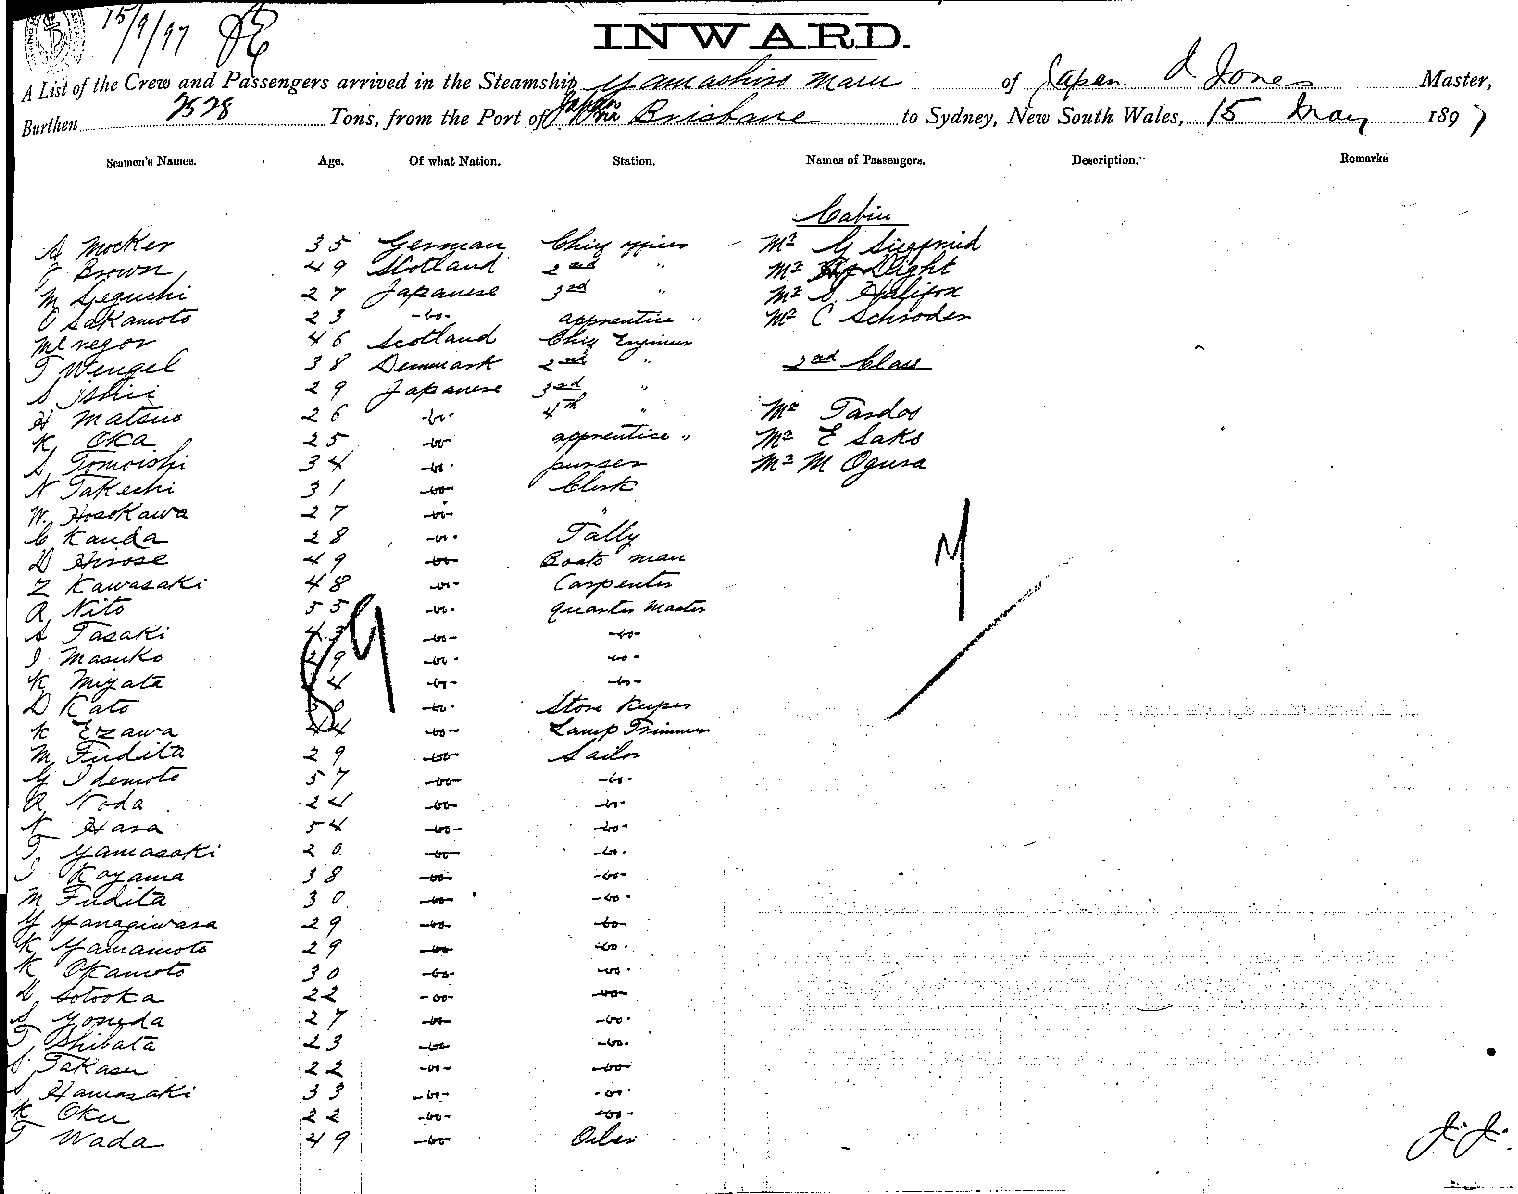 15/9/97
INWARD.
A List of the Crew and Passengers arrived in the Steamship Yamashiro Maru of Japan J Jones Master,
Burthen 2528 Tons, from the Port of Brisbane to Sydney, New South Wales, 15 May 1897
Seamen's Names. Age. Of what Nation. Station. Names of Passengers. Description. Remarks
Cabin
A Mocker 35 German Chief officer Mr G Siegfried
J Brown 49 Scotland 2nd " Mr Light
M Seguchi 27 Japanese 3rd " Mr S. Halifax
O Sakamoto 23 -do- apprentice " Mr C Schroder
46 Scotland Chief Engineer
T Wengel 38 Denmark 2nd " 2nd Class
S Ishii 29 Japanese 3rd "
H Matsuo 26 -do- 4th " Mr Tardos
K Oka 25 -do- apprentice " Mr E Saks
S Tomoishi 34 -do- purser Mr M Ogura
N Takechi 31 -do- Clerk
W. Hosokawa 27 -do- "
C Kanda 28 -do- Tally
D Hirose 49 -do- Boats man
Z Kawasaki 48 -do- Carpenter
R Nito 55 -do- quarter Master
S Tasaki 43 -do- -do-
I Masuko 29 -do- -do-
K Miyata 4 -do- -do-
D Kato -do- Store Keeper
K Ezawa 44 -do- Lamp Trimmer
M Fudita 29 -do- Sailor
G Idemoto 57 -do- -do-
R Noda 24 -do- -do-
N Hara 54 -do- -do-
T Yamasaki 20 -do- -do-
I Koyama 38 -do- -do-
M Fudita 30 -do- -do-
Y Yanagiwara 29 -do- -do-
K Yamamoto 29 -do- -do-
K Okamoto 30 -do- -do-
D Sotooka 22 -do- -do-
S Yoneda 27 -do- -do-
T Shibata 23 -do- -do-
S Takasu 22 -do- -do-
S Hamasaki 33 -do- -do-
K Oku 22 -do- -do-
T Wada 49 -do- Oiler
J.J.